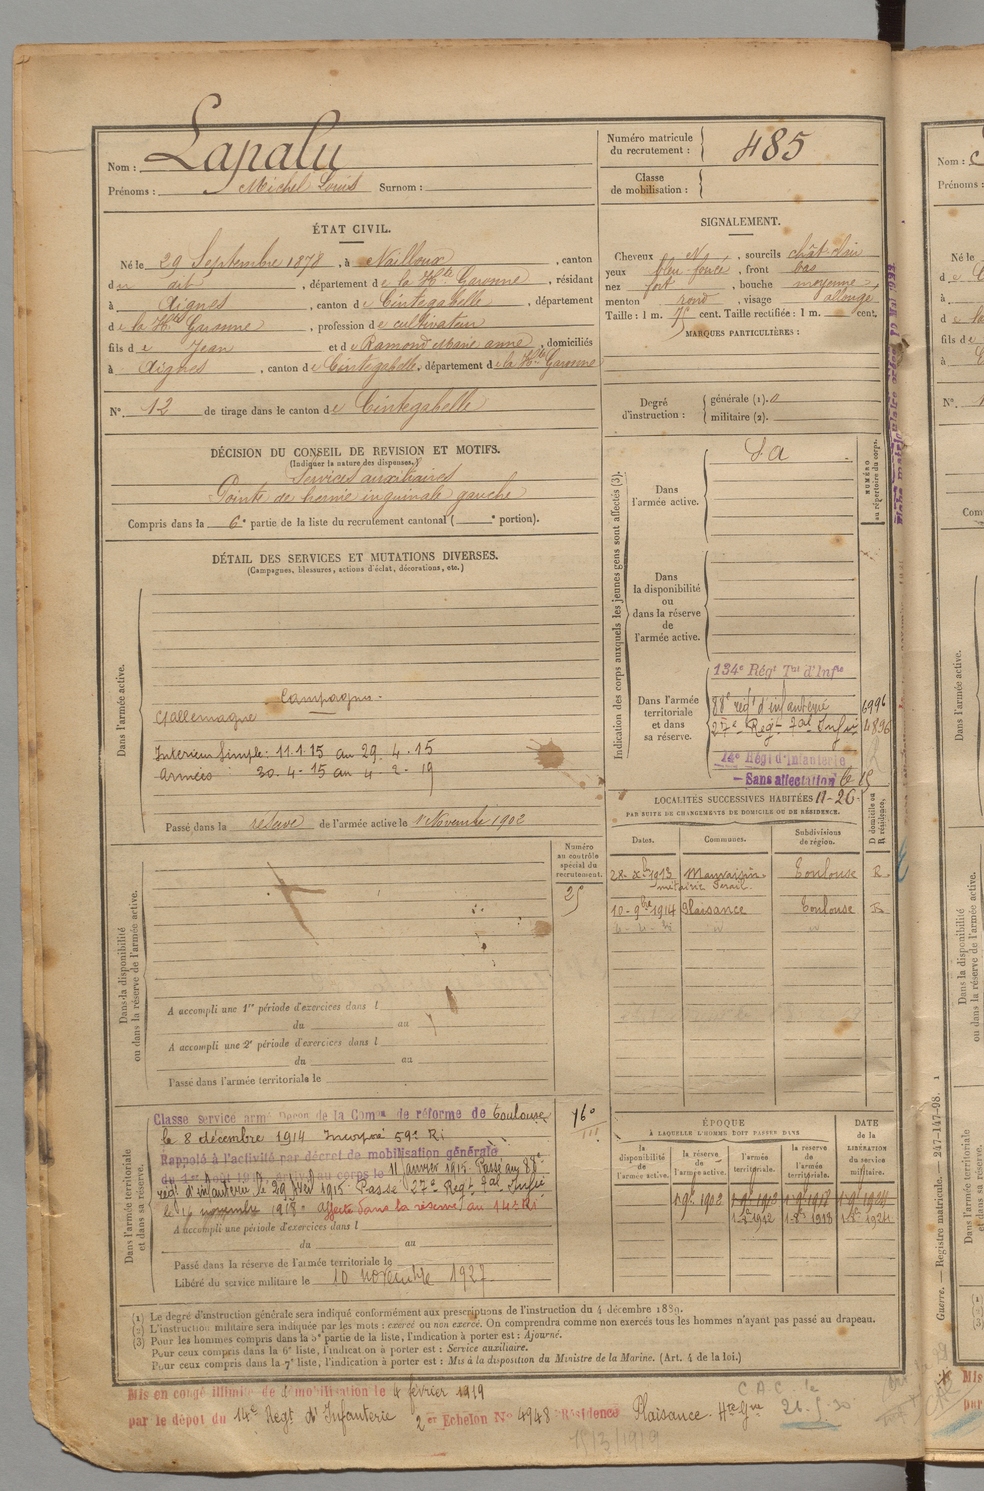 Nom : Lapalu
Prénoms : Michel Louis Surnom :
Numéro matricule du recrutement : 485
Classe de mobilisation :
ÉTAT CIVIL.
Né le 29 Septembre 1878, à Nailloux, canton
du dit, département de la Hte Garonne, résidant
à Aignes, canton de Cintegabelle, département
de la Hte Garonne, profession de cultivateur
fils de Jean et de Ramond Marie anne, domiciliés
à Aignes, canton de Cintegabelle, département de la Hte Garonne
N° 12 de tirage dans le canton de Cintegabelle
SIGNALEMENT.
Cheveux N, sourcils chât-clair
yeux bleu foncé, front bas
nez fort, bouche moyenne,
menton rond, visage allongé
Taille : 1 m. 75 cent. Taille rectifiée : 1 m. cent.
MARQUES PARTICULIÈRES :
Degré d'instruction : générale (1). 0
militaire (2).
DÉCISION DU CONSEIL DE REVISION ET MOTIFS.
(Indiquer la nature des dispenses.)
Services auxiliaires
Pointe de hernie inguinale gauche
Compris dans la 6e partie de la liste du recrutement cantonal ( e portion).
DÉTAIL DES SERVICES ET MUTATIONS DIVERSES.
(Campagnes, blessures, actions d'éclat, décorations, etc.)
Dans l'armée active.
Campagnes.
C/allemagne
Intérieur Simple : 11.1.15 au 29.4.15
Armées 30.4.15 au 4.2.19
Passé dans la réserve de l'armée active le 1 Novembre 1902
Indication des corps auxquels les jeunes gens sont affectés (3).
NUMÉRO au répertoire du corps.
Dans l'armée active.
S A
Dans la disponibilité ou dans la réserve de l'armée active.
Dans l'armée territoriale et dans sa réserve.
134e Régt Tal d'Infie
88e régt d'infanterie 6996
27e Régt Tal Infie 4896
14e Régt d'Infanterie
Sans affectation le 15
11-26
LOCALITÉS SUCCESSIVES HABITÉES
PAR SUITE DE CHANGEMENTS DE DOMICILE OU DE RÉSIDENCE.
Dates. Communes. Subdivisions de région. D domicile ou R résidence.
28-Xbre 1913 Mauvaisin Toulouse R
métairie
10-9bre 1914 Plaisance Toulouse R
Numéro au contrôle spécial du recrutement.
25
Dans la disponibilité ou dans la réserve de l'armée active.
A accompli une 1re période d'exercices dans l
du au
A accompli une 2e période d'exercices dans l
du au
Passé dans l'armée territoriale le
Dans l'armée territoriale et dans sa réserve.
Classé service armé Décon de la Comon de réforme de Toulouse
le 8 décembre 1914 Incorporé 59e Ri
Rappelé à l'activité par décret de mobilisation générale
du 1er août 1914 au corps le 11 janvier 1915. Passé au 88e
régt d'infanterie le 29 1915. Passé 27e Régt Tal Infie
le 14 novembre 1918. affecté dans la réserve au 14e Ri
A accompli une période d'exercices dans l
du au
Passé dans la réserve de l'armée territoriale le
Libéré du service militaire le 10 novembre 1927
ÉPOQUE
À LAQUELLE L'HOMME DOIT PASSER DANS
la disponibilité de l'armée active. la réserve de l'armée active. l'armée territoriale. la réserve de l'armée territoriale.
DATE de la LIBÉRATION du service militaire.
1-9bre 1902 1-9bre 1912 1-9bre 1918 1-9bre 1924
1-8bre 1912 1-8bre 1918 1-8bre 1924
(1) Le degré d'instruction générale sera indiqué conformément aux prescriptions de l'instruction du 4 décembre 1889.
(2) L'instruction militaire sera indiquée par les mots : exercé ou non exercé. On comprendra comme non exercés tous les hommes n'ayant pas passé au drapeau.
(3) Pour les hommes compris dans la 5e partie de la liste, l'indication à porter est : Ajourné.
Pour ceux compris dans la 6e liste, l'indication à porter est : Service auxiliaire.
Pour ceux compris dans la 7e liste, l'indication à porter est : Mis à la disposition du Ministre de la Marine. (Art. 4 de la loi.)
Mis en congé illimité de démobilisation le 4 février 1919
par le dépot du 14e Régt d'Infanterie 2e Echelon N° 4948 Résidence Plaisance. Hte Gne
15/3/1919
C.A.C. le
26.5.30
Guerre. — Registre matricule. — 247-147-98.